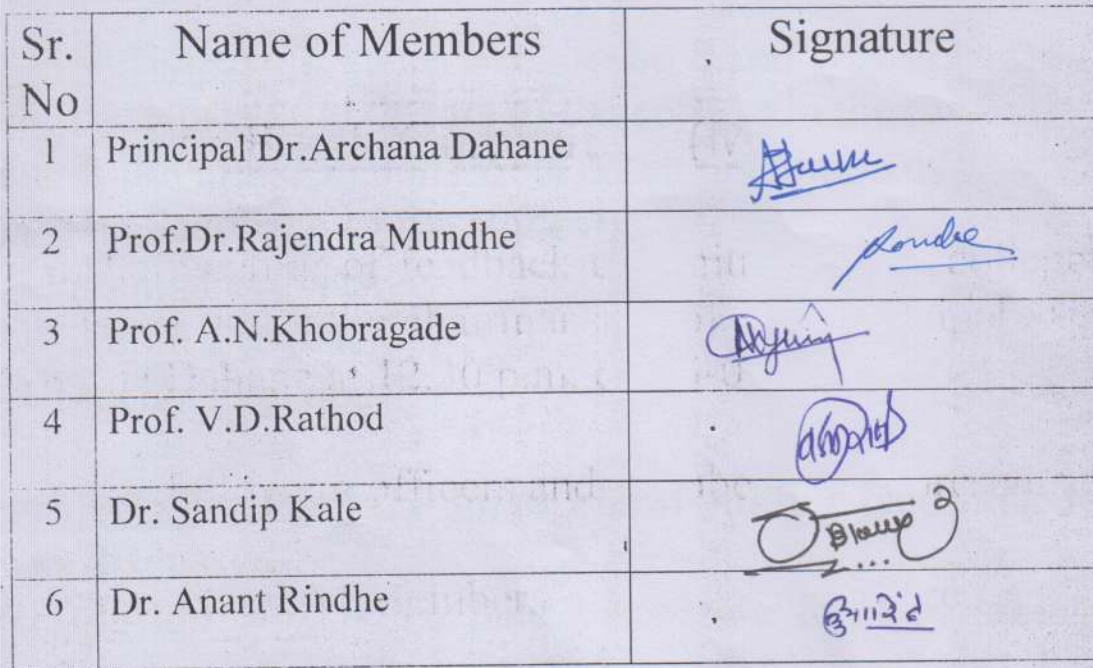 Sr. No Name of Members Signature
1 Principal Dr.Archana Dahane
2 Prof.Dr.Rajendra Mundhe
3 Prof. A.N.Khobragade
4 Prof. V.D.Rathod
5 Dr. Sandip Kale
6 Dr. Anant Rindhe